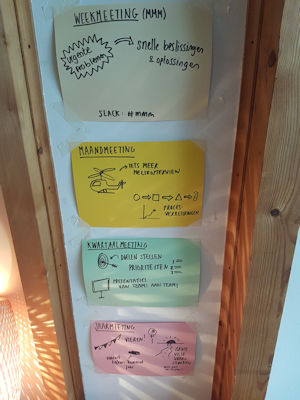 WEEKMEETING (MMM)
urgente
problemen
snelle beslissingen
& oplossingen
SLACK: #mmm
MAANDMEETING
IETS MEER
HELIKOPTERVIEW
PROCES-
VERBETERINGEN
KWARTAALMEETING
DOELEN STELLEN
PRIORITEITEN 1
2
3
PRESENTATIES
VAN TEAMS AAN TEAMS
JAARMEETING
VIEREN!
GROTE
VISIE